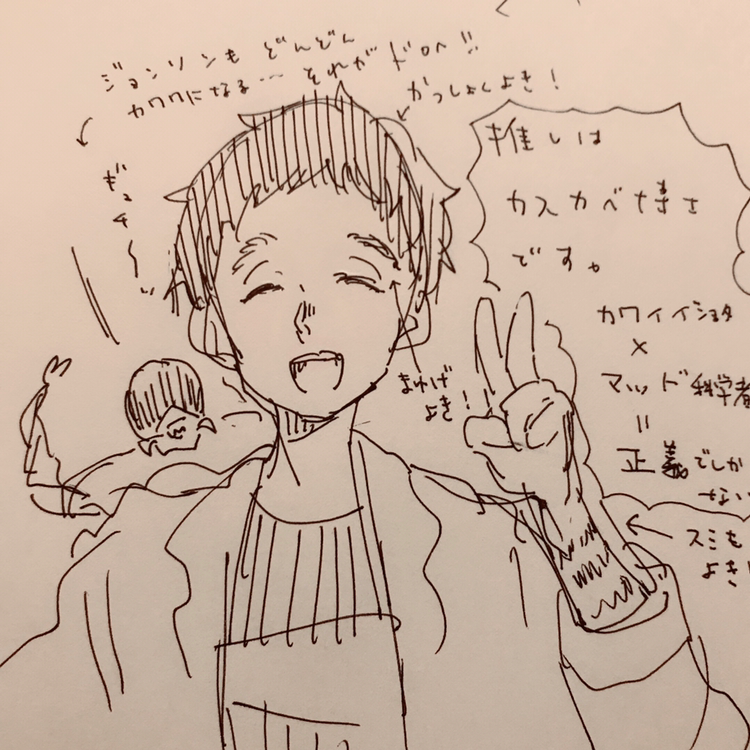 ジョンソンも どんどん
カワワになる… それが ドロヘ!!
かっしょくよき!
ギュ
推しは
カスカベ博士
です。
カワイイショタ
×
マッド科学者
=
正義でしか
ない
まゆげ
よき!
スミも
よき!